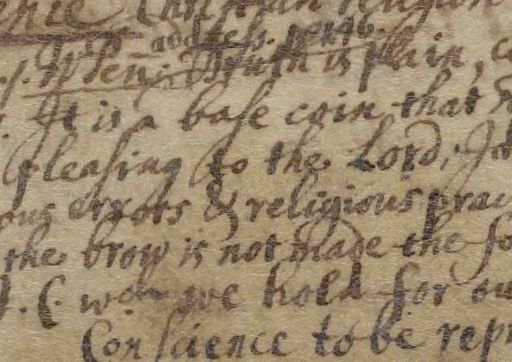 Christian religion
address. p. 146.
W Pen: Truth is plain, c
It is a base coin that n
pleasing to the Lord,
ous errors & religious prac
the brow is not made the
J. C. wch we hold for ou
Conscience to be repr